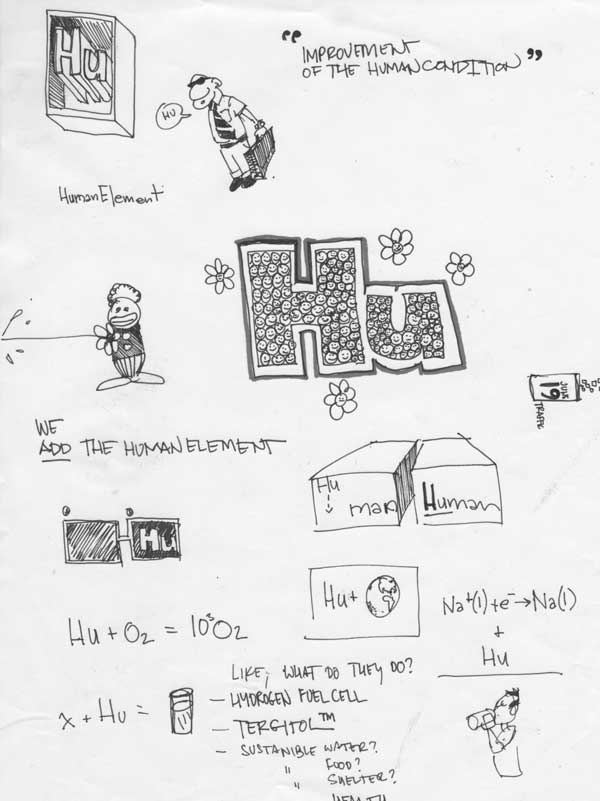 Hu
"IMPROVEMENT
OF THE HUMAN CONDITION"
HU
HumanElement
Hu
JULY
19
TRAFFIC
WE
ADD THE HUMAN ELEMENT
Hu
man
Human
Hu
Hu+
Na+(l)+e-→Na(l)
+
Hu
Hu + O2 = 10³O2
LIKE, WHAT DO THEY DO?
x + Hu =
— HYDROGEN FUEL CELL
— TERGITOL™
— SUSTANIBLE WATER?
" FOOD?
" SHELTER?
HEALTH